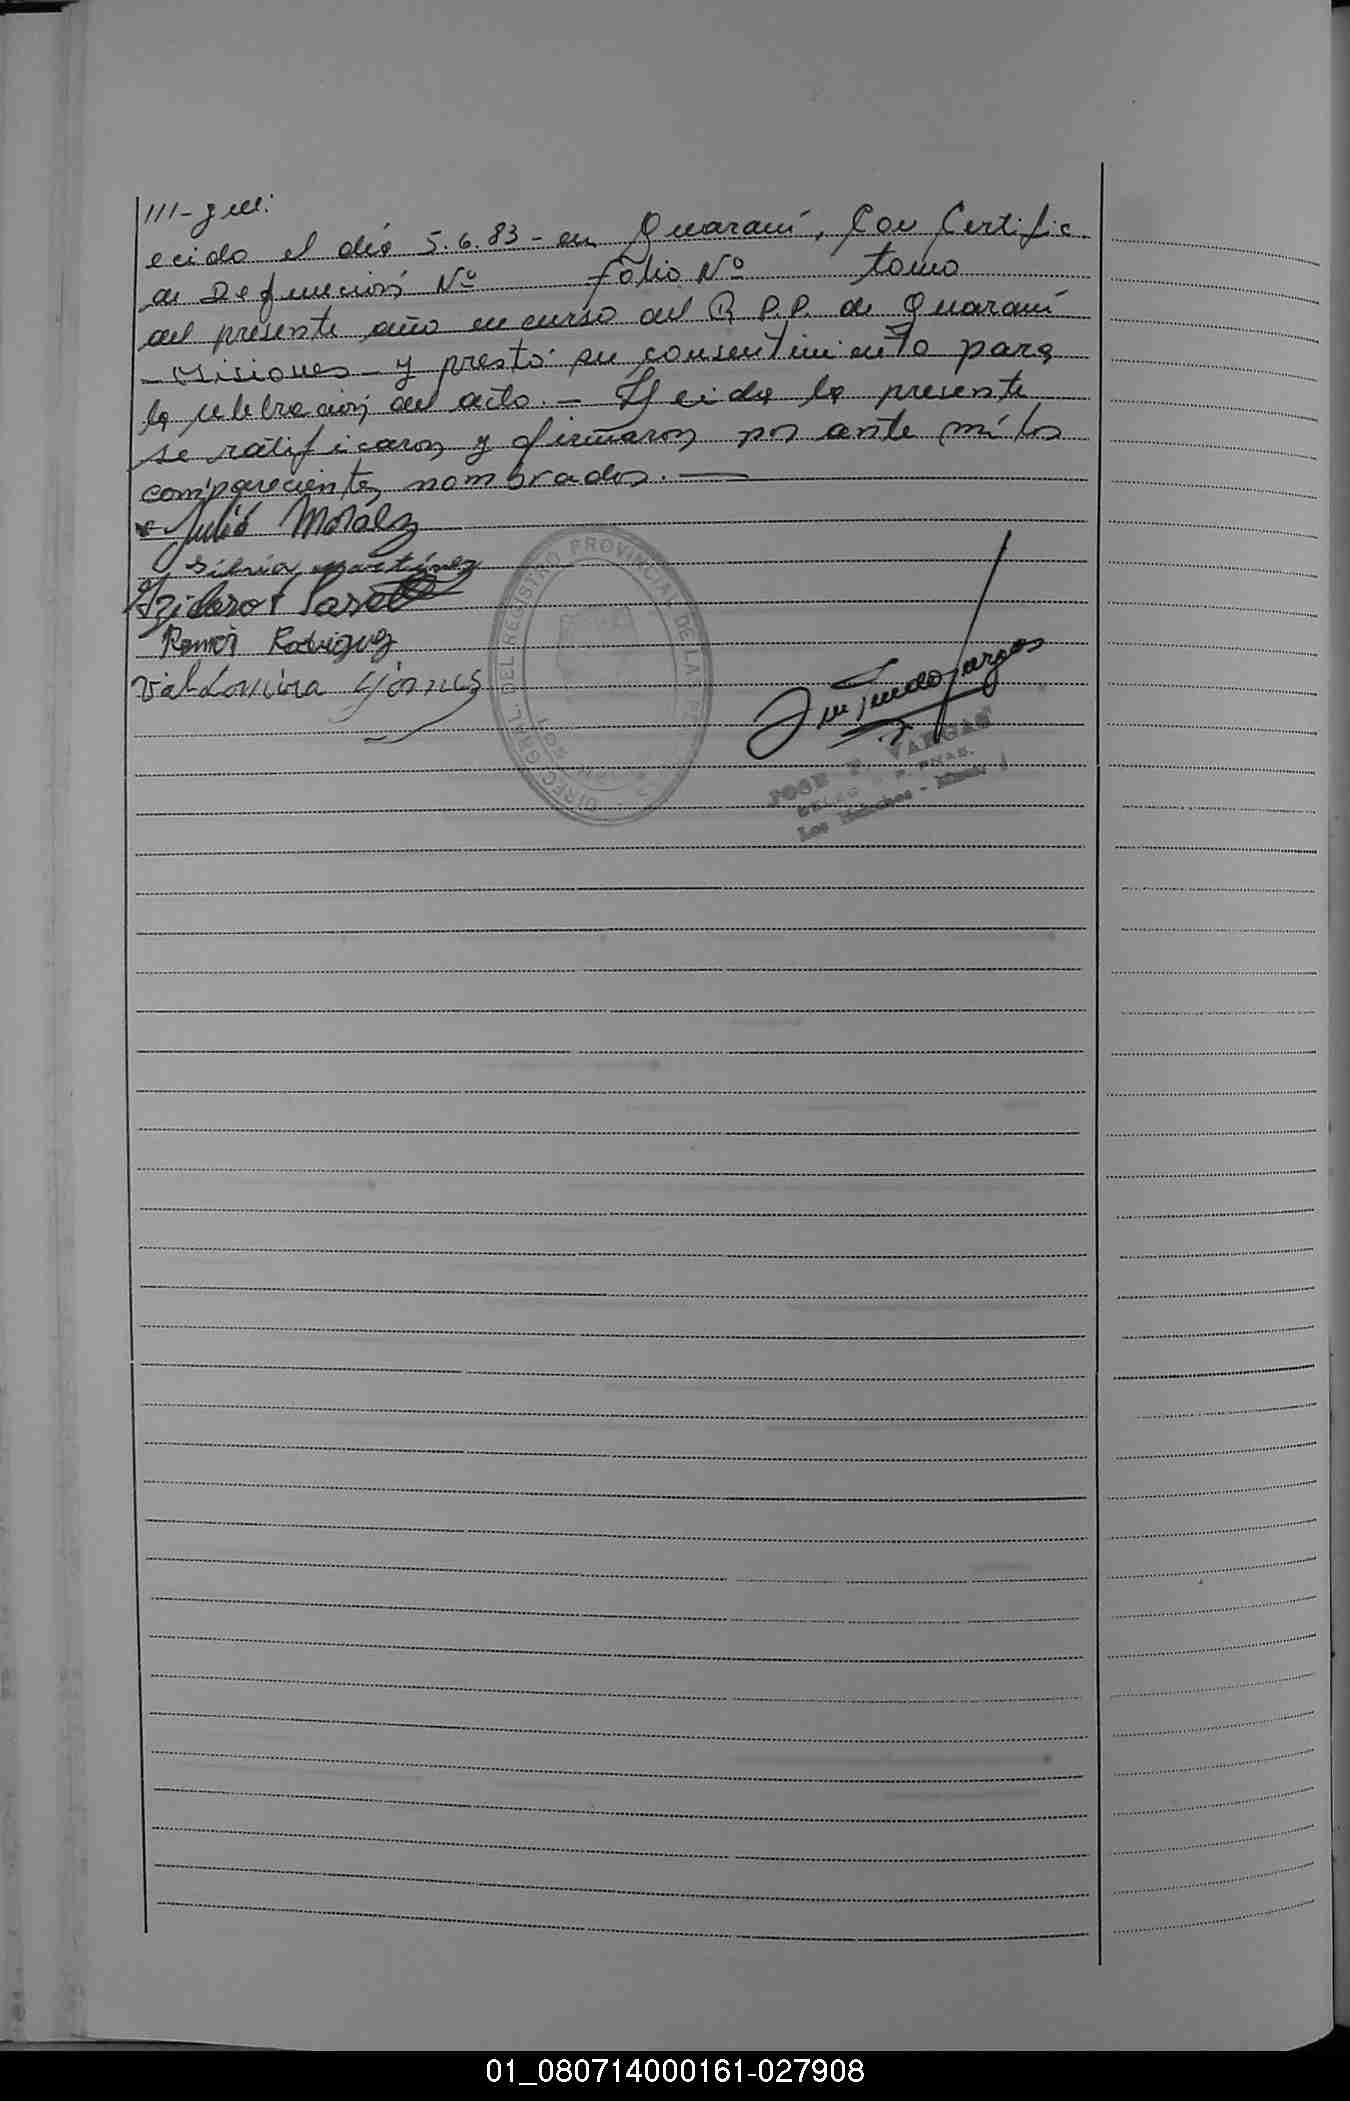 ///-
ecido el día 5.6.83 - en Guaraní, Con Certific.
de Defunción Nº folio Nº tomo
del presente año en curso del R.P.P. de Guaraní
- Misiones - y prestó su consentimiento para
la celebración del acto. - Leida la presente
se ratificaron y firmaron por ante mí los
comparecientes nombrados. —
Julio Moralez
Silvia martinez
Ramón Rodriguez
Valdomira Gomes
DIREC. GRAL. DEL REGISTRO PROVINCIAL DE LAS
JOSE F. VARGAS
Los Helechos - Mnes
01_080714000161-027908